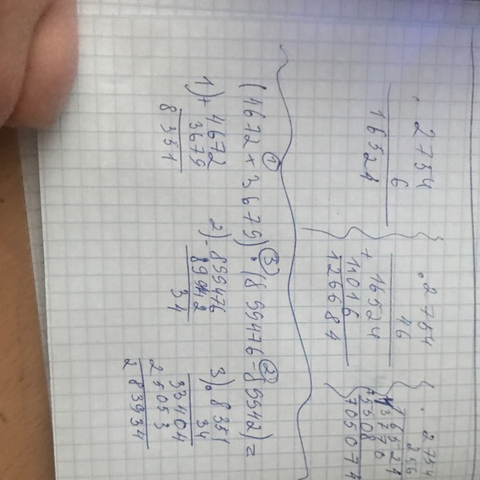 · 2754
6
16524
· 2754
46
+ 16524
11016
126684
· 2754
256
16524
13770
5508
705074
① ③ ②
(4672+3679)·(899476-89942)=
1) + 4672
3679
8351
2) - 899476
34
3) · 8351
34
33404
25053
283934